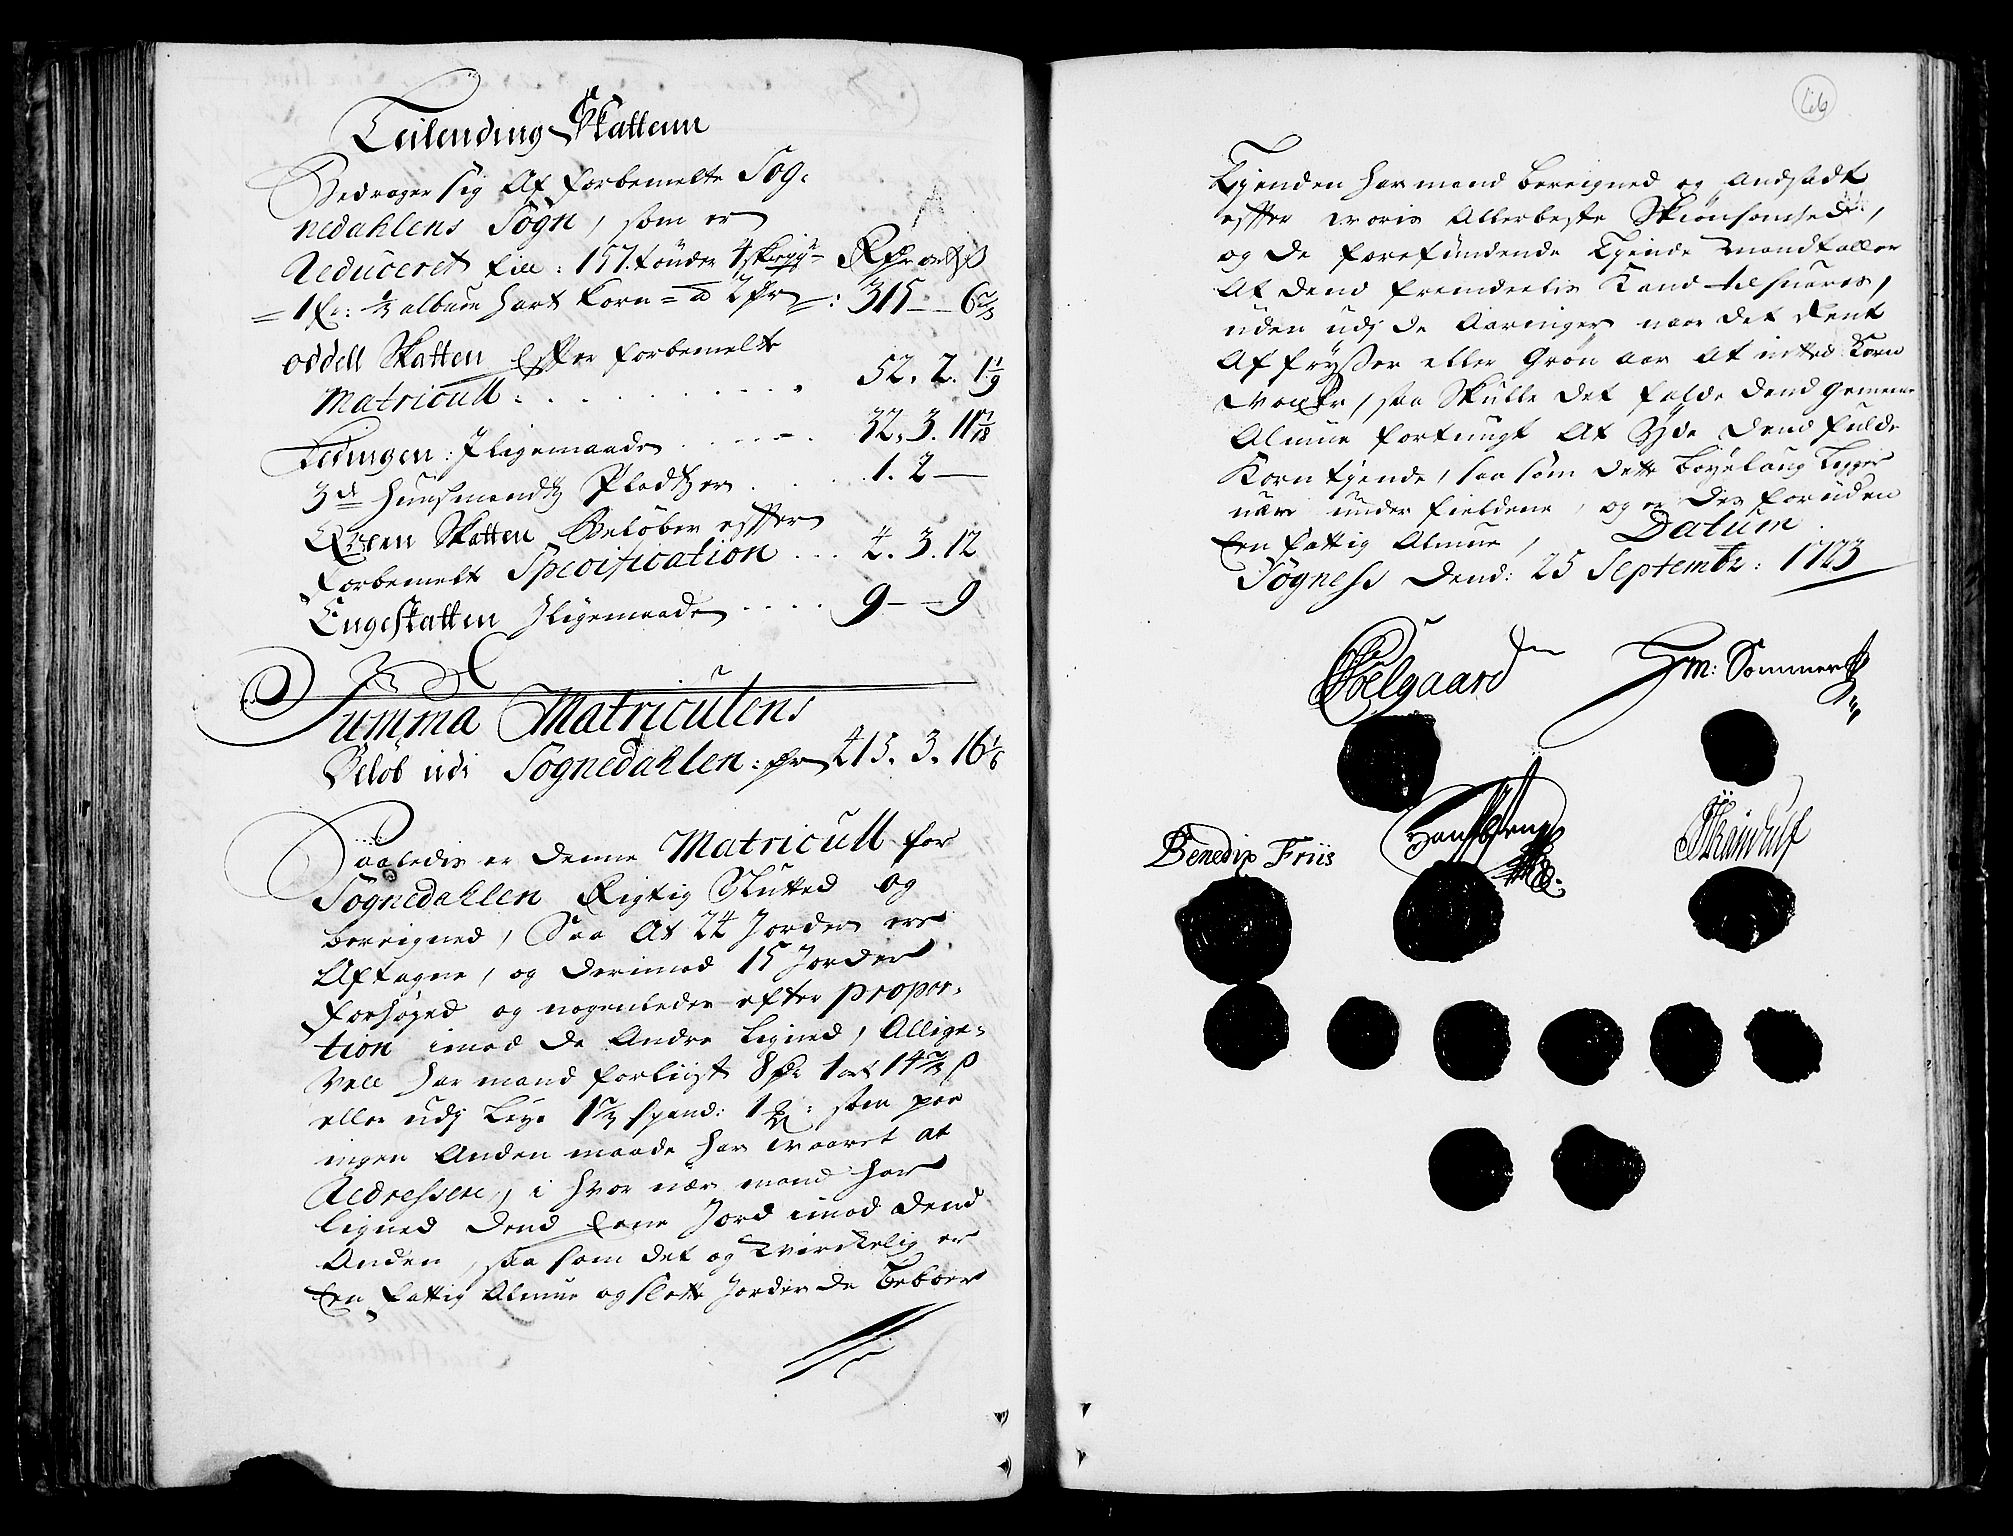 Leilending Skattenn
Bedrager sig Af forbemelte Sog-
nedahlens Sogn, som er
Reduceret till: 157. tönder 4 skiepp
1 fr: ½ album hart Korn = a 2 dr : 315 — 6⅔
Oddell Skatten Effter forbemelte
Matricull 52. 2. 1 1/9
Ledingen: Jligemaade 32. 3. 11 1/18
3de Huusmandtz Pladtzer 1. 2 —
Qveen Skatten Beløber effter
forbemelt Specification 2. 3. 12
Engeskatten Jligemaade 9 — 9
Summa Matriculens
Beløb udi Sognedahlen: dr 413. 3. 16 1/6
Saaledis er denne Matricull for
Sognedahlen Rigtig Slutted og
bereigned, Saa At 24 Jorder ere
Aftagne, og derimod 15 Jorder
forhøyed og nogenledes efter propor-
tion imod de Andre Ligned, Allige-
vell har mand forliist 8 dr 1 ort 14⅔ ß
eller udj Leye 1⅔ spand: 1 : som paa
ingen Anden maade har Waaret at
Redressere, i hvor nær mand har
ligned dend Eene Jord imod dend
Anden, saa som det og Wirckelig er
Een fattig Almue og slette Jorder de beboer
66
Tjenden har mand bereigned og Andsadt
effter Woris Allerbeste Skiønsomhed,
og de forefundende Tjende Mandtaller
At dend fremdeelis Kand tilsvares,
uden udj de Aaringer naar det Rent
Affryßer eller Grøn aar At intted Korn
Woxer, saa Skulle det falde dend gemeene
Almue fortungt At Yde dend fulde
Korn tjende, saa som dette bøyelaug Ligger
nær under fieldene, og er des foruden
Een fattig Almue, Datum
Sogness Dend: 25 Septembr: 1723
Poelgaard
Hm: Sommer
Benedix Friis